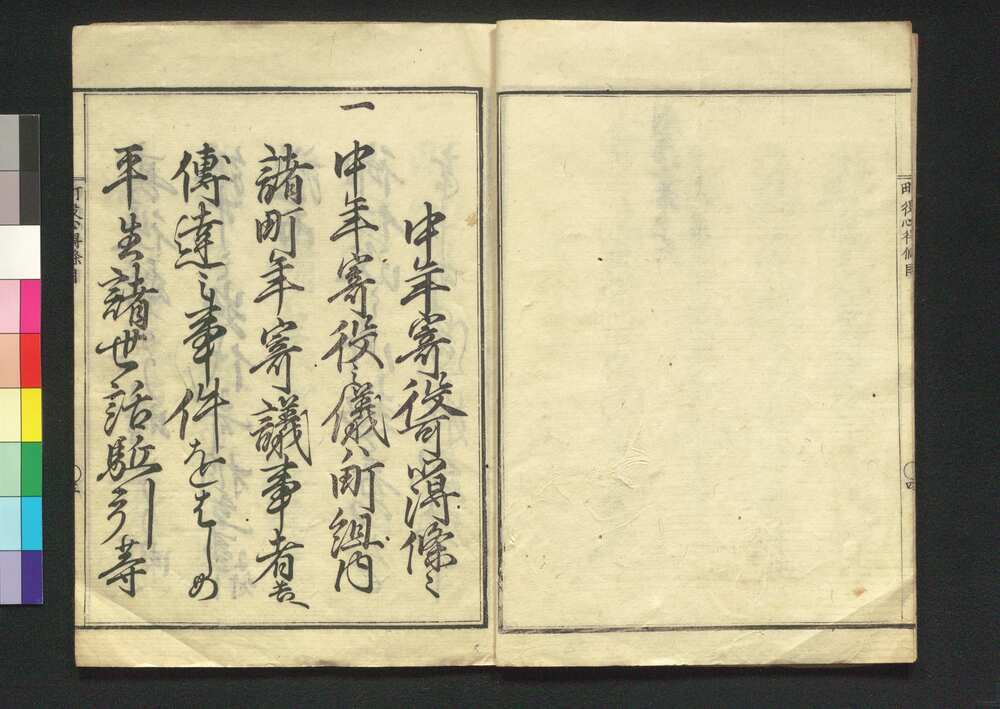 町役心得條目
四
中年寄役可心得條々
一
中年寄役之儀ハ町組内
諸町年寄議事者共へ
傳達之事件をはしめ
平生諸世話駈引等
町役心得條目